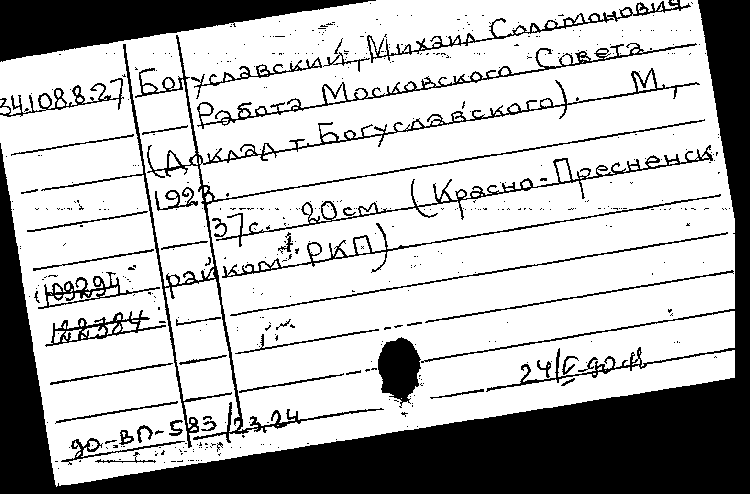 34.108.8.27 Богуславский, Михаил Соломонович
Работа Московского Совета.
(Доклад т. Богуславского). М.,
1923.
37с. 20см. (Красно-Пресненск.
райком РКП).
(109294.
122784.
до-ВП-583/23.24